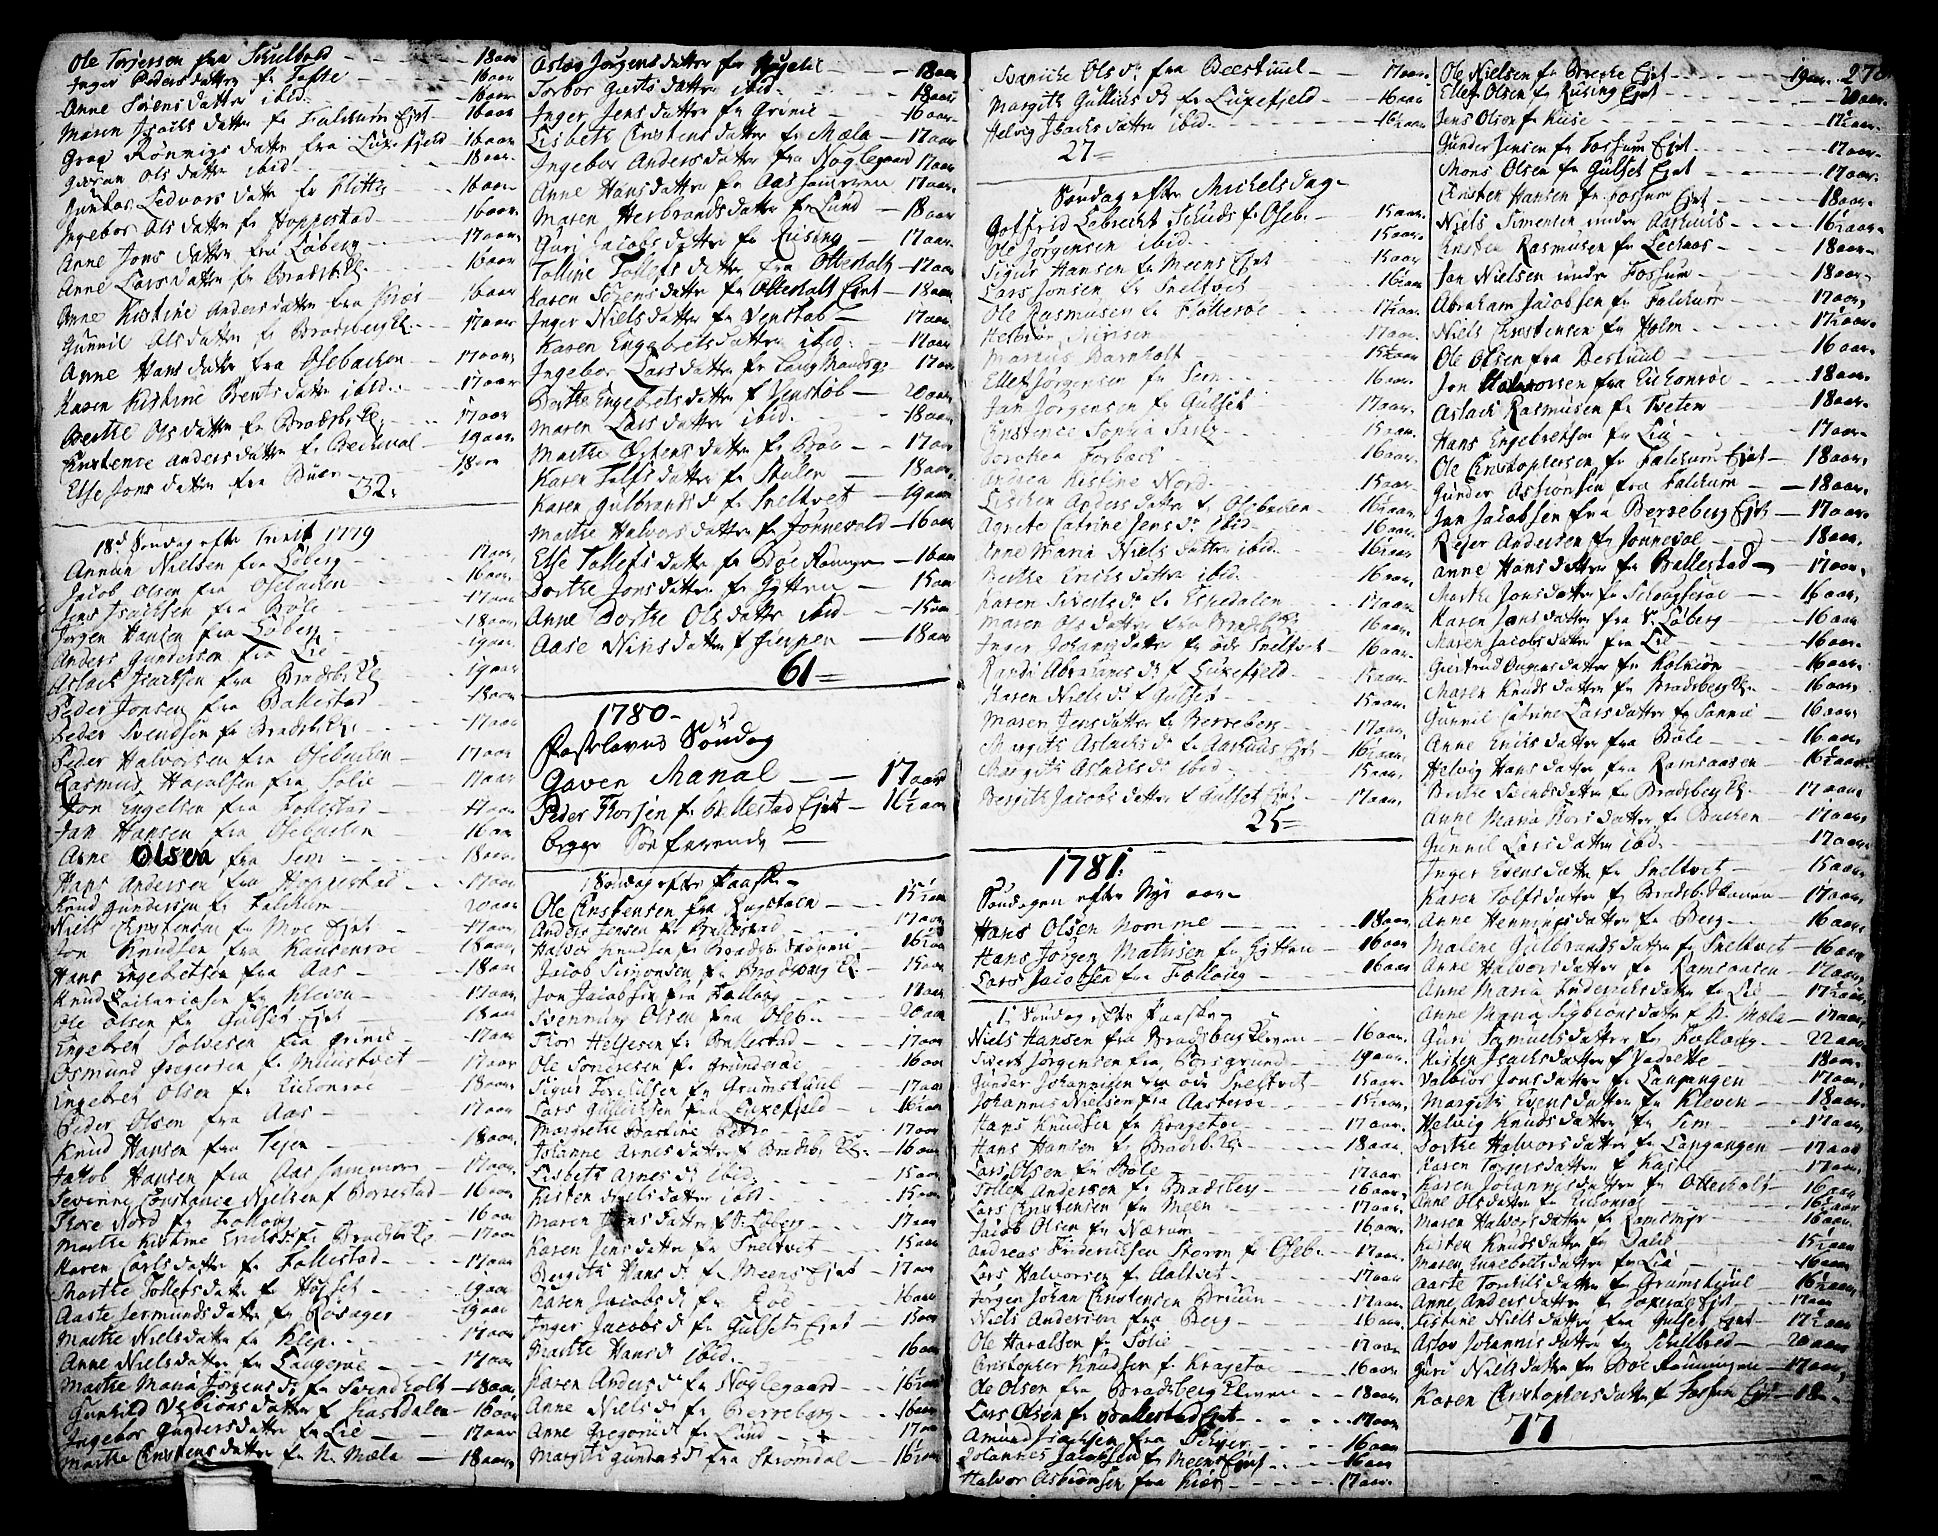 Ole Torjersen fra Skilbred - 18 aar
Inger Pedersdatter fr Tofte - 16 aar
Anne Sörensdatter ibid. - 16 aar
Maren Isachsdatter fr Falckum Ejet - 16 aar
Rönnigsdatter fra Luxefjeld - 16 aar
Olsdatter ibid - 18 aar.
Ledvorsdatter fr - 16 aar
Ingebor Olsdatter fr Hoppestad - 16 aar
Anne Jonsdatter fra Löberg - 17 aar.
Anne Larsdatter fr Bradsb. Kl. - 16 aar
Anne Kistine Andersdatter fra - 16 aar
Gunnil Olsdatter fr Bradsberg Kl. - 17 aar
Anne Hansdatter fra Osebachen - 17 aar
Karen Kistine Bentsdatter ibid. - 17 aar
Berthe Olsdatter fr Bradsb. Kl. - 17 aar
Kirstence Andersdatter fr - 19 aar.
Else Jonsdatter fra Buer - 18 aar
32.
18d Söndag efter Trinit 1779
Nielsen fra Löberg - 17 aar.
Jacob Olsen fra Osebachen - 16 aar.
Jens Isachsen fra Böle - 17 aar
Jörgen Hansen fra Löberg - 18 aar.
Anders Gundersen fra Lie - 19 aar.
Aslach Isachsen fra Bradsb. Kl - 19 aar
Peder Jonsen fra Ballestad - 18 aar
Peder Svendsen fr Bradsb. Kl. - 17 aar
Peder Halvorsen fra Osebachen - 17 aar
Rasmus Haralsen fra Solie - 17 aar
Jon Engelsen fra Follestad - 17 aar
Jan Hansen fra Osebachen - 16 aar
Arne Olsen fra Sem - 18 aar.
Hans Andersen fra Hoppestad - 17 aar
Knud Gundersen fr Falckum - 20 aar
Niels Christensen fr Moe Ejet - 17 aar.
Jon Knudsen fra - 18 aar.
Hans Engebretsen fra Aas - 18 aar
Knud Zachariasen fr Kleven - 17 aar
Ole Olsen fr Gulset Ejet - 18 aar
Engebret Solvesen fra Grinie - 17 aar
Osmund Gregersen fr - 17 aar
Engebret Olsen fr Eichonroe - 18 aar
Peder Olsen fra Aas - 17 aar
Knud Hansen fra Tejen - 18 aar.
Jacob Hansen fra Aas - 17 aar.
Severine Constance Nielsen f Borrestad - 16 aar
Thore Nord fr Follaug - 16 aar
Marthe Kistine Ericksd. fr Bradsb. Kl - 17 aar
Karen Carlsdatter fr Follestad - 17 aar
Marthe Tollefsdatter fr - 19 aar
Aaste Jermundsdatter fr Rösager - 19 aar
Marthe Nielsdatter fr Klep - 17 aar
Anne Nielsdatter fr Langeröe - 17 aar
Marthe Maria Jörgensd: fr Svendholt - 18 aar.
Gunhild datter f - 16 aar
Ingebor Gundersdatter fr Lie - 17 aar
Marthe Christensdatter fr N. Mæla - 18 aar.
Aslög Jörgensdatter fr - 18 aar.
Torbor Giertsdatter ibid. - 18 aar
Inger Jensdatter fr Grinie - 16 aar.
Lisbeth Christensdatter fr Mæla - 17 aar.
Ingebor Andersdatter fra Nöglegaard - 17 aar
Anne Hansdatter fr Aas - 17 aar.
Maren Herbrandsdatter fr Lund - 18 aar
Guri Jacobsdatter fr Rising - 17 aar.
Tolline Tollefsdatter fra Otterholt - 17 aar
Karen Sörensdatter fr Otterholt Ejet - 18 aar
Inger Nielsdatter fr Venstöb - 17 aar.
Karen Engebretsdatter ibid. - 17 aar.
Ingebor Larsdatter fr - 17 aar
Dorthe Engebretsdatter f Venstöb - 20 aar
Maren Larsdatter ibid. - 18 aar.
Marthe Ostensdatter fr Böe - 17 aar
Karen Tolfsdatter fr - 18 aar.
Karen Gulbrandsd fr Sneltvet - 19 aar
Marthe Halvorsdatter fr Jönnevald - 16 aar
Else Tollefsdatter fr Böe - 16 aar
Dorthe Jonsdatter fr Gytterie - 15 aar
Anne Dorthe Olsdatter ibid - 15 aar
Aase Nirisdatter f Gierpen - 18 aar
61=
1780-
Fastelavns Söndag
Gaven Manal - 17 aar
Peder Thorsen fr Ballestad Ejet - 16½ aar
begge Söe farende
1 Söndag efter Paaske
Ole Christensen fra - 15½ aar
Anders Jensen fr Ballestad - 17 aar
Halvor Knudsen fr Bradsb. - 16½ aar
Jacob Simonsen fr Bradsberg Kl. - 15 aar
Jon Jacobsen fra Follaug - 17 aar
Svennung Olsen fra Oseb. - 20 aar
Thor Helgesen fr Ballestad - 17 aar
Ole fr - 16 aar
Sigur fr Gramstuul - 17 aar
Lars Gullichsen fra Luxefjeld - 16½ aar
Margrethe - 17 aar
Johanne Arnesdatter f Bradsb. Kl. - 16 aar
Lisbeth Arnesd ibid. - 15 aar
Kisten Nielsdatter ibid. - 15 aar
Maren Jensdatter f. S. Löberg - 17 aar
Karen Jensdatter fr Sneltvet - 15 aar
Bergith Hansd fr Meens Ejet - 17 aar
Karen Jacobsd fr - 16 aar
Inger Jacobsd fr Gulset Ejet - 15 aar
Marthe Hansd. ibid. - 16 aar
Karen Andersd fr Nöglegaard - 16½ aar
Anne Nielsd fr Berreberg - 16 aar
Anne Gregoriid fr Lund - 17 aar
Margith Gundersd fra Strömdal - 16½ aar
Olsdr fra Beestuul - 17 aar
Margith Gullichsd fr Luxefjeld - 16 aar
Helvig Isachsdatter ibid. - 16½ aar
27=
Söndag efter Michelsdag
Gotfrid Lebrecht fr Oseb. - 15 aar
Ole Jörgensen ibid. - 15 aar
Sigur Hansen fr Meens Ejet - 15 aar
Lars Jonsen fr Sneltvet - 16½ aar
Ole Rasmusen fr Flötteröe - 17½ aar
Nirisen - 17 aar
Marius Barnholt - 15½ aar
Ellef Jörgensen fr Sem - 16 aar.
Jan Jörgensen fr Gulset - 17 aar.
Christence Sophia - 15 aar.
Dorothea Forback - 16 aar.
Andrea Kistine Nord - 15 aar.
Lischen Andersdatter f. Osebachen - 16½ aar.
Agnete Catrine Jensdr ibid - 16 aar.
Anne Maria Nielsdatter ibid. - 16½ aar
Berthe Erichsdatter ibid. - 16 aar.
Karen Sivertsd: fr Espedalen - 17 aar.
Maren Olsdatter fra Bradsb. Kl. - 16 aar.
Inger Johannsdatter fr öde Sneltvet - 16 aar.
Randi Abrahamsd: f Luxefjeld - 17 aar.
Karen Nielsd: f Gulset - 15 aar.
Maren Jensdatter fr Berreberg - 17 aar.
Margith Aslachsd: fr Aarhuus Ejet - 16½ aar.
Margith Aslachsd. ibid - 15 aar.
Bergith Jacobsdatter f Gulset Ejet - 17 aar.
25=
1781.
Söndagen efter Nyt aar
Hans Olsen Nomme - 18 aar
Hans Jörgen Mathisen fr Gitterie - 16 aar
Lars Jacobsen fra Follaug - 16 aar
1. Söndag efter Paaske
Niels Hansen fra Bradsberg Kleven - 16 aar.
Sivert Jörgensen fra Porsgrund - 19 aar.
Gunder Johannesen fra öde Sneltvet - 15 aar.
Johannes Nielsen fra Aasteröe - 15½ aar.
Hans Knudsen fr Kragetoe - 17 aar.
Hans Hansen fr Bradsb. Kl. - 18 aar.
Lars Olsen fr Böle - 17 aar
Tollef Andersen fr Bradsberg - 16 aar.
Lars Christensen fr Meen - 17 aar.
Jacob Olsen fr Nærum - 16 aar.
Andreas Friderichsen Storm fr Oseb. - 17 aar.
Lars Halvorsen fr Aaltvet - 17 aar
Jörgen Johan Christensen Bruun - 17 aar.
Niels Andersen fra Berg - 16 aar.
Ole Haralsen fr Solie - 17 aar
Christopher Knudsen fr Kragetoe - 16 aar
Ole Olsen fra Bradsberg Kleven - 18 aar
Lars Olsen fr Ballestad Ejet - 17 aar
Amund Isachsen fra - 16 aar
Johannes Jacobsen fr Meens Ejet - 16 aar
Halvor Asbiönsen fra Kiær - 17 aar.
270
Ole Nielsen fr Ejet - 19 aar.
Ellef Olsen fr Rising Ejet - 20 aar.
Jens Olsen fr Riise - 17½ aar.
Gunder Jensen fr Fossum Ejet - 17 aar.
Mons Olsen fr Gulset Ejet - 17 aar.
Christen Hansen fr Fossum Ejet - 18 aar.
Niels Simensen under Aarhuus - 16½ aar.
Christen Rasmusen fr - 18 aar.
Jan Nielsen under Fossum - 18 aar.
Abraham Jacobsen fr Falckum - 17 aar.
Niels Christensen fr Holm - 17½ aar.
Ole Olsen fra Bestuul - 16 aar.
Jon Halvorsen fra Eichonröe - 18 aar.
Aslach Rasmusen fr Tveten - 18 aar.
Hans Engebretsen fr Lie - 17 aar.
Ole Christophersen fr Falckum Ejet - 18 aar.
Gunder Asbiönsen fra Falckum - 18 aar.
Jan Jacobsen fra Berreberg Ejet - 17 aar.
Reier Andersen fr Jönnevoe - 18 aar.
Anne Hansdatter fr Ballestad - 17 aar.
Marthe Jonsdatter fr - 16 aar.
Karen Jonsdatter fra S. Löberg - 16 aar
Maren Jacobsdatter fra Lie - 16 aar.
Giertrud datter fr - 16 aar
Maren Knudsdatter fr Bradsberg Kl. - 16 aar.
Gunnil Catrine Larsdatter fr - 16 aar
Anne Erichsdatter fra Böle - 16 aar.
Helvig Hansdatter fra Ramsaasen - 16½ aar
Berthe datter fr Bradsberg Kl. - 17 aar.
Anne Maria datter fr Bachen - 17 aar.
Gunnil Larsdatter ibid. - 17 aar.
Inger Evensdatter fr Sneltvet - 15 aar
Karen Tolfsdatter fr Bradsb. - 17 aar.
Anne Henningsdatter fr Berg - 16 aar.
Malene Gulbrandsdatter fr Sneltvet - 16 aar
Anne Halvorsdatter fr Ramsaasen - 17 aar.
Anne Maria datter fr Lie - 17½ aar.
Anne Maria Sigbiönsdatter f N. Mæla - 17 aar.
Guri Samuelsdatter fr Follaug - 22 aar
Kisten Isachsdatter f - 18 aar.
Valbiör Jonsdatter fr Langangen - 17 aar.
Margith Evensdatter fr Kleven - 18 aar.
Helvig Knudsdatter fr Sem - 17 aar.
Dorthe Halvorsdatter fr Langangen - 17 aar
Karen Torgersdatter fr Kaste - 17 aar.
Karen Johannisdatter fr Otterholt - 16 aar
Anne Olsdatter fr Eichonröe - 16½ aar
Maren Halvorsdatter fr - 16 aar.
Kisten Knudsdatter fr - 15½ aar
Maren Engebretsdatter fr Lie - 16 aar
Aaste Torkilsdatter fr Gramstuul - 16½ aar
Anne Andersdatter fr Ejet - 17 aar
Kistine Nielsdatter fra Gulset Ejet - 17½ aar
Aslög Johannisdatter fr Skilbred - 20 aar
Guri Nielsdatter fr Böe - 17 aar.
Karen Christophersdatter f Fossum Ejet - 18 -
77